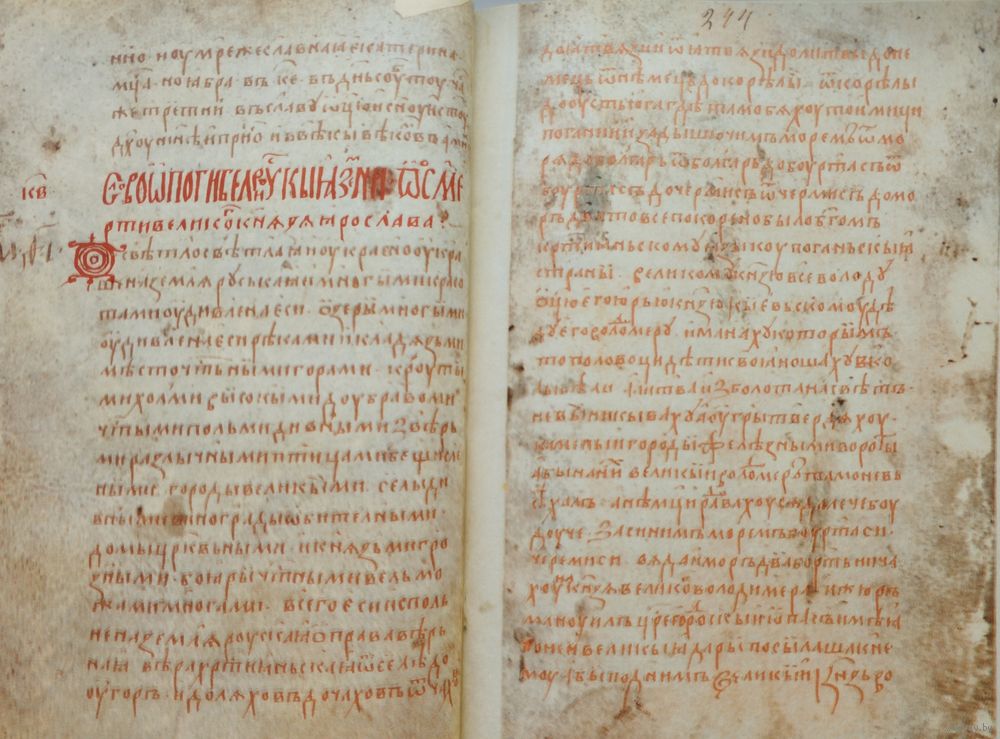 нно ноумрежеславнаꙗ екатерина
мцⷭ҇а ноꙗбра въ ке въ днь соуⷠ҇тоу ча
же третии въ славу ѡцю и сноу и стоⷨ
дхоу и нн҃ѣ и прⷭ҇но и въ вѣкы вѣкомъ ами
кв
Сло́во ѡ погибели рускыꙗ земли и ѡ сме
рти великоⷢ кнꙗзꙗ ꙗрослава
О свѣтло свѣтлаꙗ и оукрасно оукра
шена землꙗ руськаꙗ и многыми красо
тами оудивлена еси ѡзеры многыми
оудивлена еси рѣками и кладꙗзьми
мѣсточтьными горами крутыⷨ
ми холми высокыми доубравоми
чⷭ҇тыми польми дивными звѣрь
ми разлычными птицами бещисле
ными городы великыми селы ди
вными винограды ѡбителными
домы црк҃вьными и кнꙗзьми гро
зными боꙗры чⷭ҇тными вельмо
жами многами всего еси испольⷩ
нена землꙗ роускаꙗ ѡ прававѣрь
наꙗ вѣра хрⷭ҇тиꙗньскаꙗ ѡселѣ до
оугоръ и до лꙗховъ до чаховъ ѡ чаховъ
244
до ꙗтвꙗзи и ѿ ꙗтвꙗзи до литвы до не
мець ѿ нѣмець до корѣлы ѿ корѣлы
до оустьюга гдѣ тамо бꙗхоу тоимици
погании и за дышючимъ моремъ ѿ мо
рꙗ до болгаръ ѿ болгаръ до боуртасъ ѿ
боуртасъ до чермисъ ѿ чермисъ до мо
рьдви то все покорено было бг҃омъ
крⷭ҇тиꙗньскому ꙗзыкоу поганьскыꙗ
страны великому кнꙗзю всеволоду
ѡцю его юрью кнꙗзю кыевьскому дѣ
ду его володимеру и манамаху которымъ
то половоци дѣти своꙗ ношаху в ко
лыбѣли а литва из болота на свѣтъ
не выникываху а оугры твердꙗхоу
каменыи городы желѣзными вороты
абы на нихъ великыи володимеръ тамо не вь
ѣхалъ а нѣмци радовахоусꙗ далече боу
доуче за синимъ моремъ боуртаси
черемиси вꙗда и моръдва бортьнича
хоу на кнꙗзꙗ великого володимера и кюръ
маноуилъ цр҃егородскыи опасъ имѣꙗ
поне и великыꙗ дары посылаша к не
моу абы под нимъ великыи кнꙗзь во